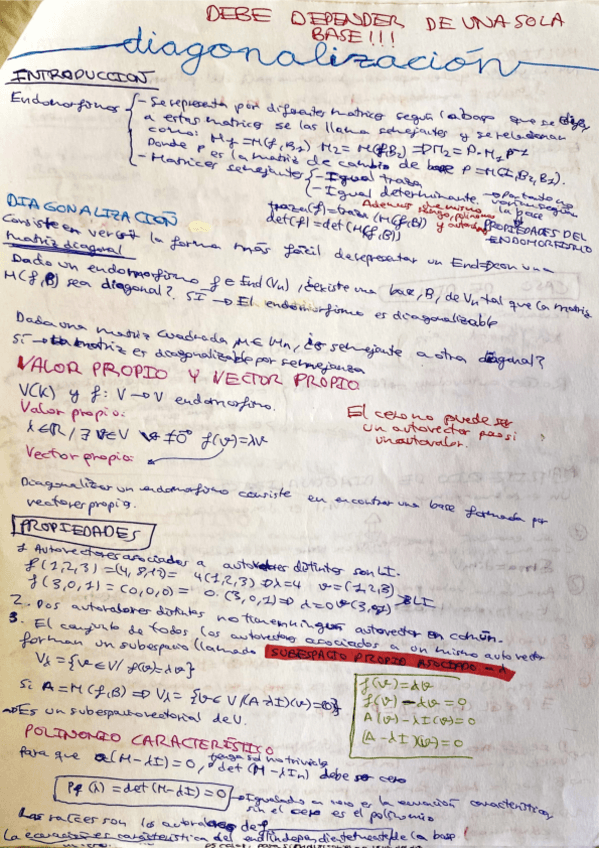 DEBE DEPENDER DE UNA SOLA
BASE!!!
diagonalización
INTRODUCCION
Endomorfismo - Se representa por diferentes matrices según la base que se
a estas matrices se las llama semejantes y se relacionan
como: M1 = M(f,B1) M2 = M(f,B2) => M2 = P·M1·P-1
Donde P es la matriz de cambio de base
- Matrices semejantes - Igual traza
- Igual determinante
la base
Ademas mismo
rango, polinomio
y autovalores
traza(f) = traza(M(f,B))
det(f) = det(M(f,B))
PROPIEDADES DEL
ENDOMORFISMO
DIAGONALIZACIÓN
Consiste en ver la forma más fácil de representar un End = con una
matriz diagonal
Dado un endomorfismo f ∈ End(Vn), ¿existe una base, B, de Vn tal que la matriz
M(f,B) sea diagonal? SI → El endomorfismo es diagonalizable
Dada una matriz cuadrada M ∈ Mn, ¿es semejante a otra diagonal?
Si → La matriz es diagonalizable por semejanza
VALOR PROPIO Y VECTOR PROPIO
V(K) y f: V → V endomorfismo.
Valor propio:
λ ∈ R / ∃ v ∈ V v ≠ 0 f(v) = λv
Vector propio:
El cero no puede ser
un autovector pero si
un autovalor.
Diagonalizar un endomorfismo consiste en encontrar una base formada por
vectores propios.
PROPIEDADES
1 Autovectores asociados a autovalores distintos son LI.
f(1,2,3) = (4,8,12) = 4(1,2,3) => λ=4 v=(1,2,3)
f(3,0,1) = (0,0,0) = 0·(3,0,1) => λ=0 v(3,0,1) LI
2. Dos autovalores distintos no tienen ningun autovector en común.
3. El conjunto de todos los autovectores asociados a un mismo autovector
forman un subespacio llamado SUBESPACIO PROPIO ASOCIADO a λ
Vλ = {v ∈ V / f(v) = λv}
Si A = M(f,B) => Vλ = {v ∈ V / (A-λI)(v) = 0}
→ Es un subespacio vectorial de V.
f(v) = λv
f(v) - λv = 0
A(v) - λI(v) = 0
(A - λI)(v) = 0
POLINOMIO CARACTERÍSTICO
para que (M-λI) = 0, tenga sol no trivial, det(M-λIn) debe ser cero
Pf(λ) = det(M-λI) = 0 → Igualado a cero es la ecuación característica,
sin el cero es el polinomio
Las raíces son los autovalores de f
La ecuación es característica del end independientemente de la base!